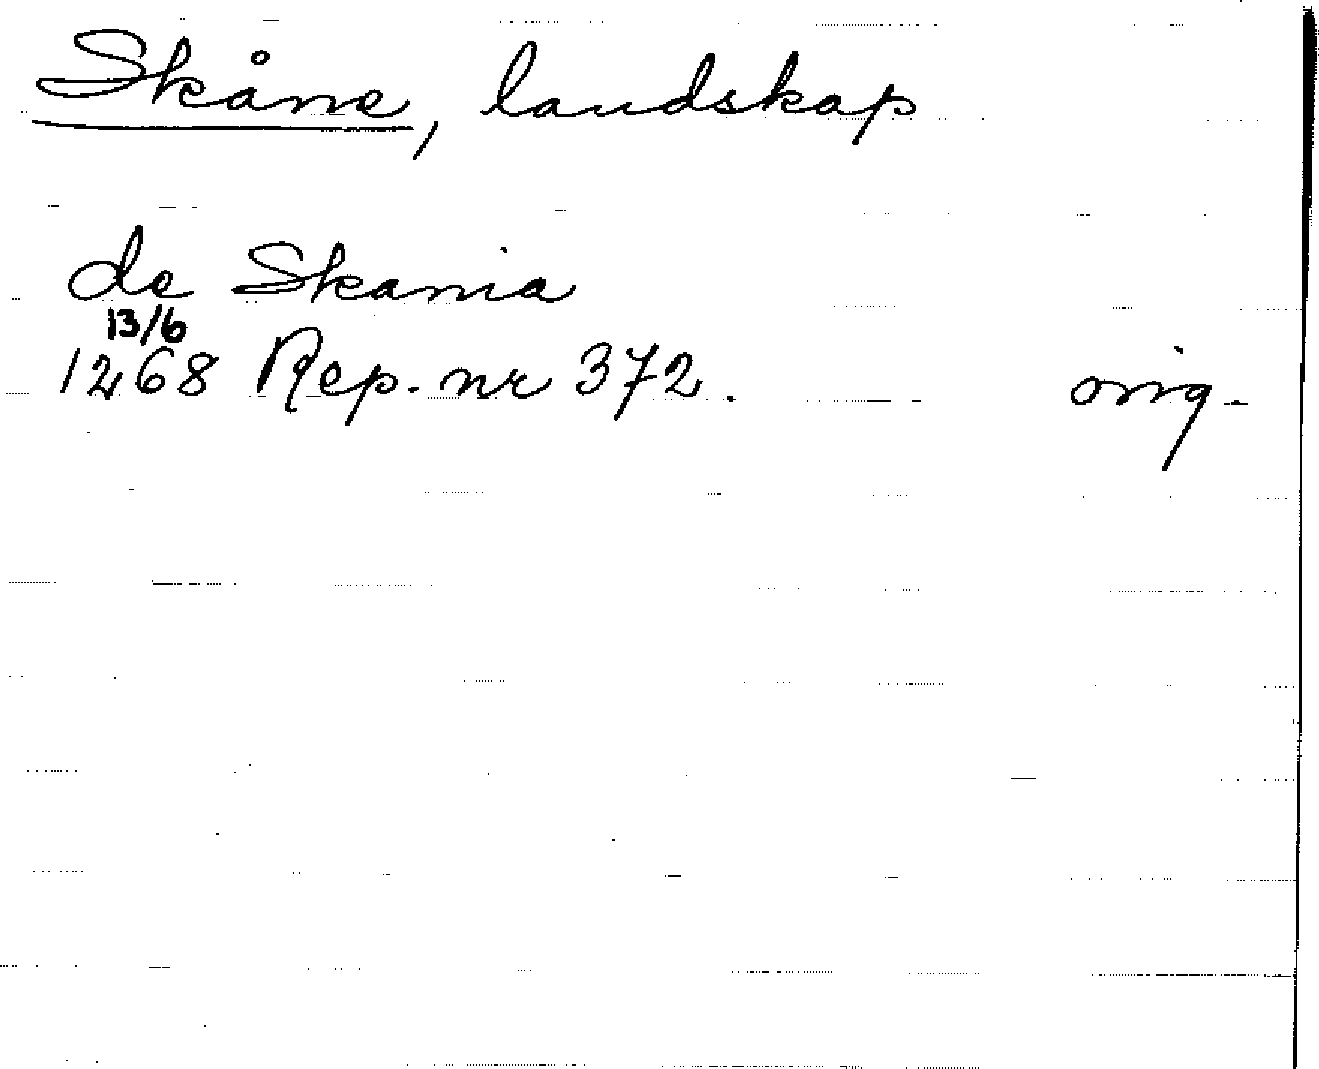 Skåne, landskap
de Skania
13/6
1268 Rep. nr 372. orig.